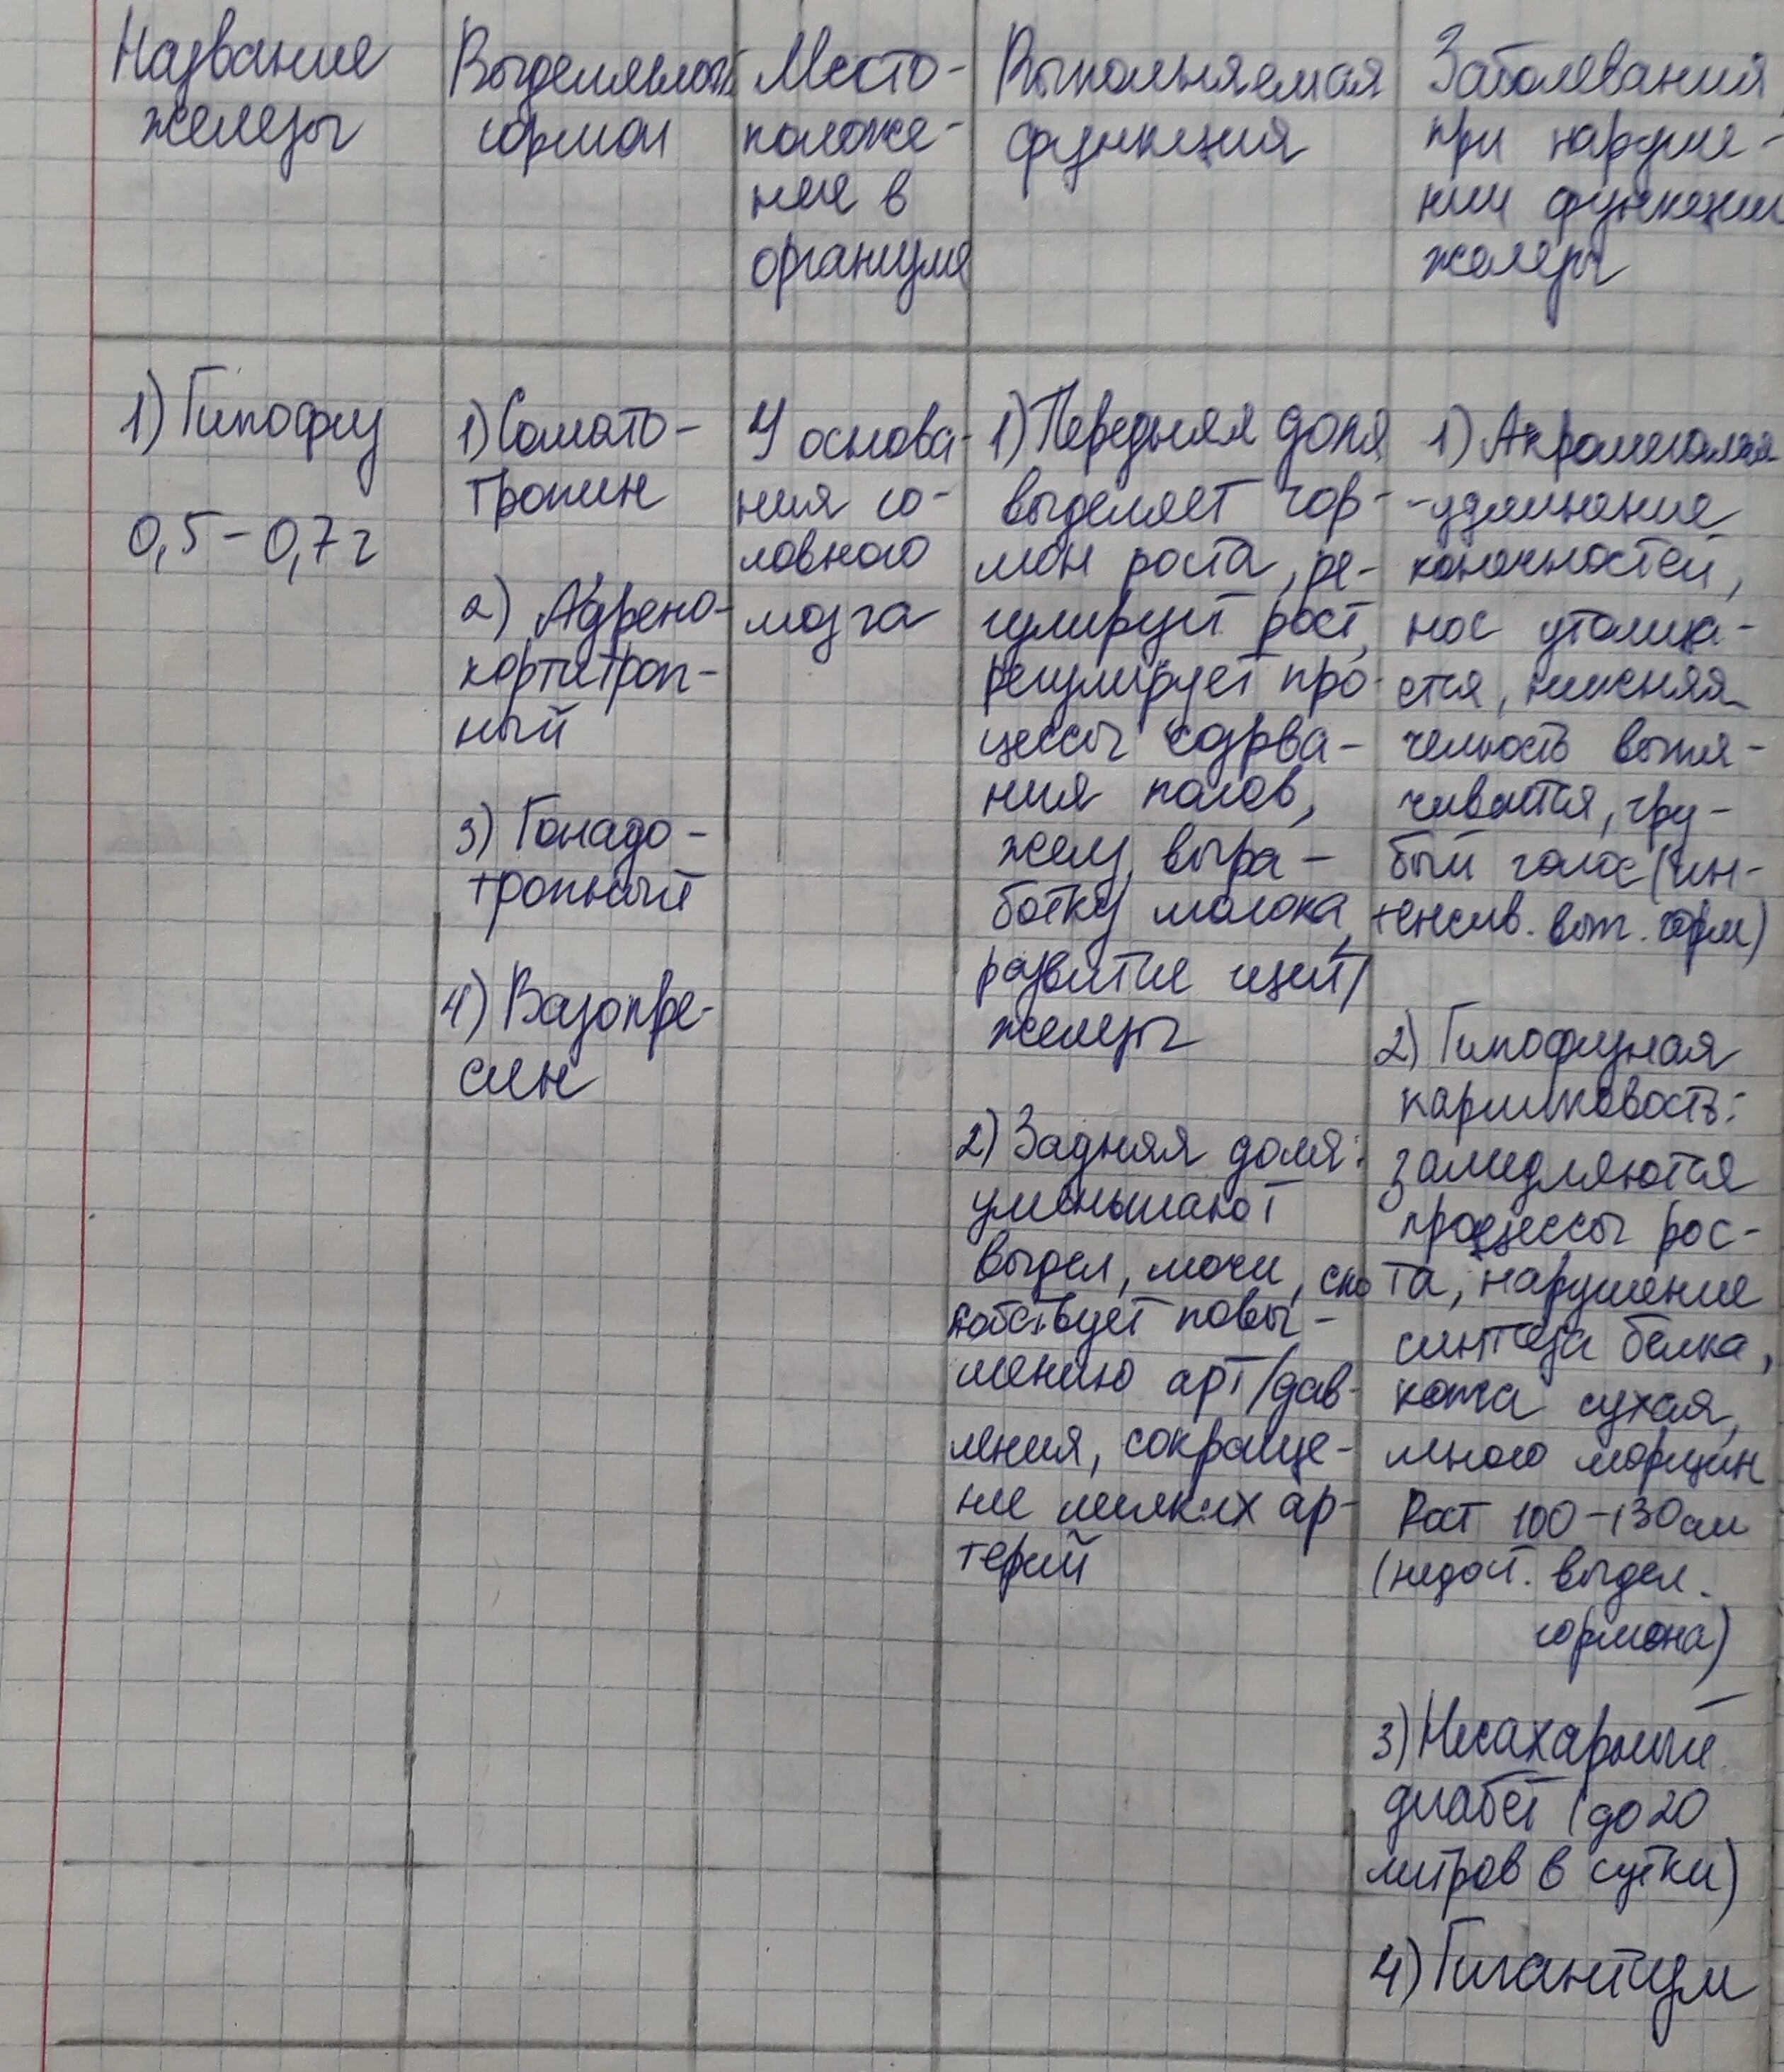 Название
железы
Выделяемый
гормон
Место-
положе-
ние в
организме
Выполняемая
функция
Заболевания
при наруше-
нии функции
железы
1) Гипофиз
0,5 - 0,7 г
1) Сомато-
тропин
2) Адрено-
кортитроп-
ный
3) Гонадо-
тропный
4) Вазопре-
син
У основа-
ния го-
ловного
мозга
1) Передняя доля
выделяет гор-
мон роста, ре-
гулирует рост,
регулирует про-
цессы созрева-
ния полов,
желез, выра-
ботку молока,
развитие щит/
железы
2) Задняя доля:
уменьшают
выдел, мочи, спо
собствует повы-
шению арт/дав-
ления, сокраще-
ние мелких ар-
терий
1) Акромегалия
- удлинение
конечностей,
нос утолща-
ется, нижняя
челюсть вытя-
гивается, гру-
бый голос (ин-
тенсив. выт. горм)
2) Гипофизная
карликовость:
замедляются
процессы рос-
та, нарушение
синтеза белка,
кожа сухая,
много морщин
Рост 100-130 см
(недост. выдел.
гормона)
3) Несахарный
диабет (до 20
литров в сутки)
4) Гигантизм